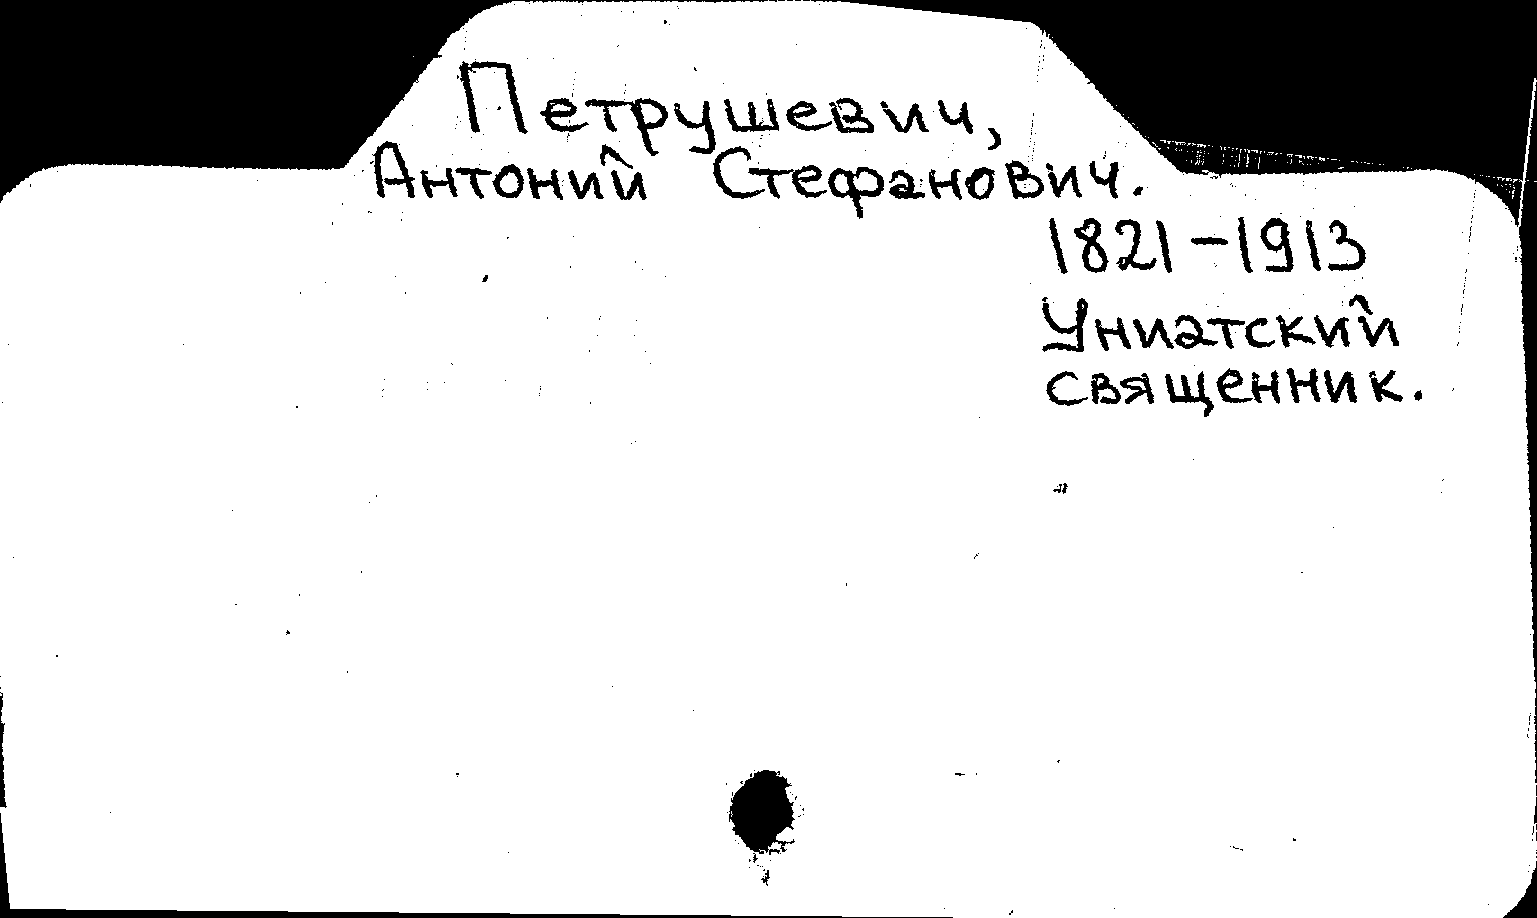 Петрушевич,
Антоний Стефанович.
1821-1913
Униатский
священник.